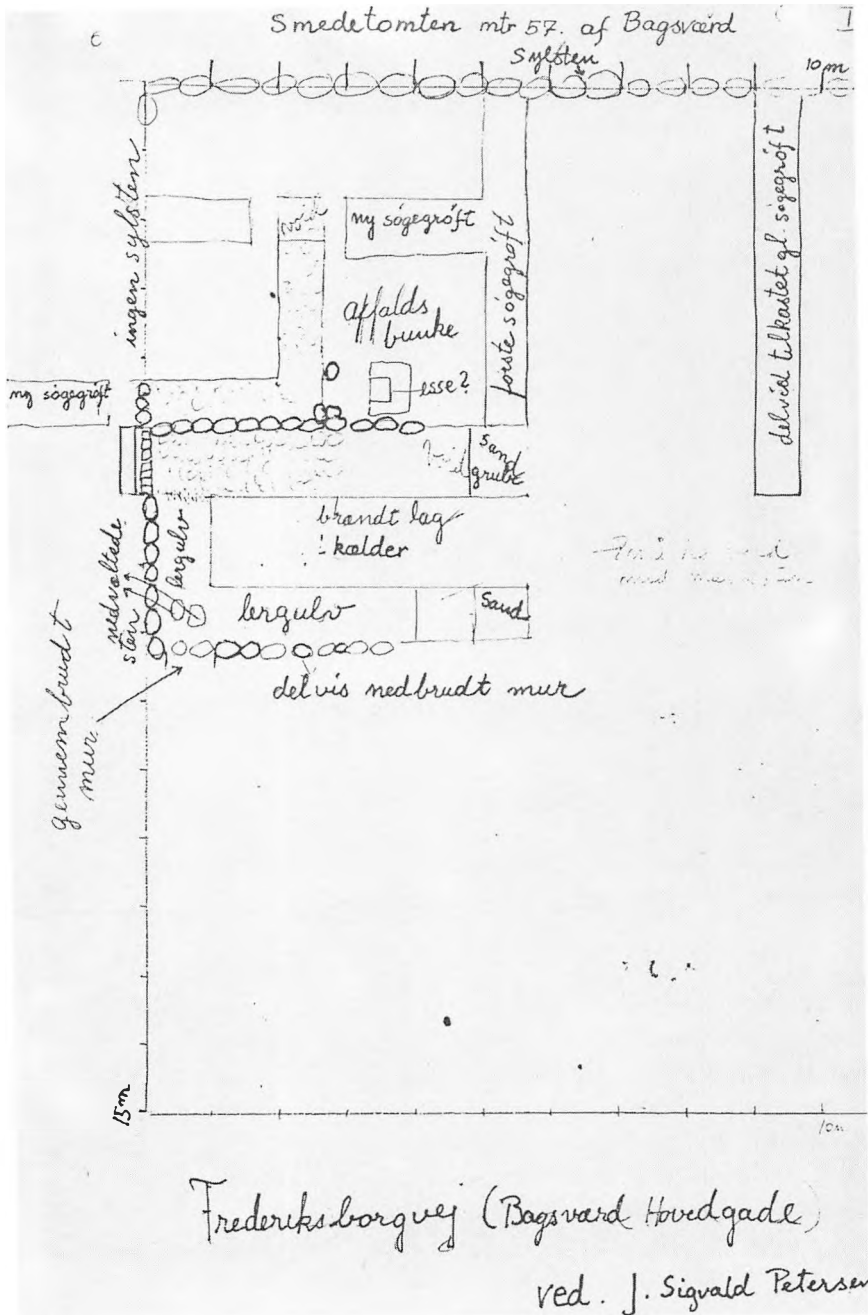 Smedetomten mtr 57. af Bagsværd
I
Sylsten
10 m
ingen sylsten
ny søgegrøft
første søgegrøft
delvid tilkastet gl. søgegrøft
affalds
bunke
esse?
ny søgegrøft
Sand
grube
brændt lag
kælder
nedvæltede
sten
lergulv
lergulv
Sand
gennembrudt
mur
delvis nedbrudt mur
15 m
10 m
Frederiksborgvej (Bagsværd Hovedgade)
ved. J. Sigvald Petersen